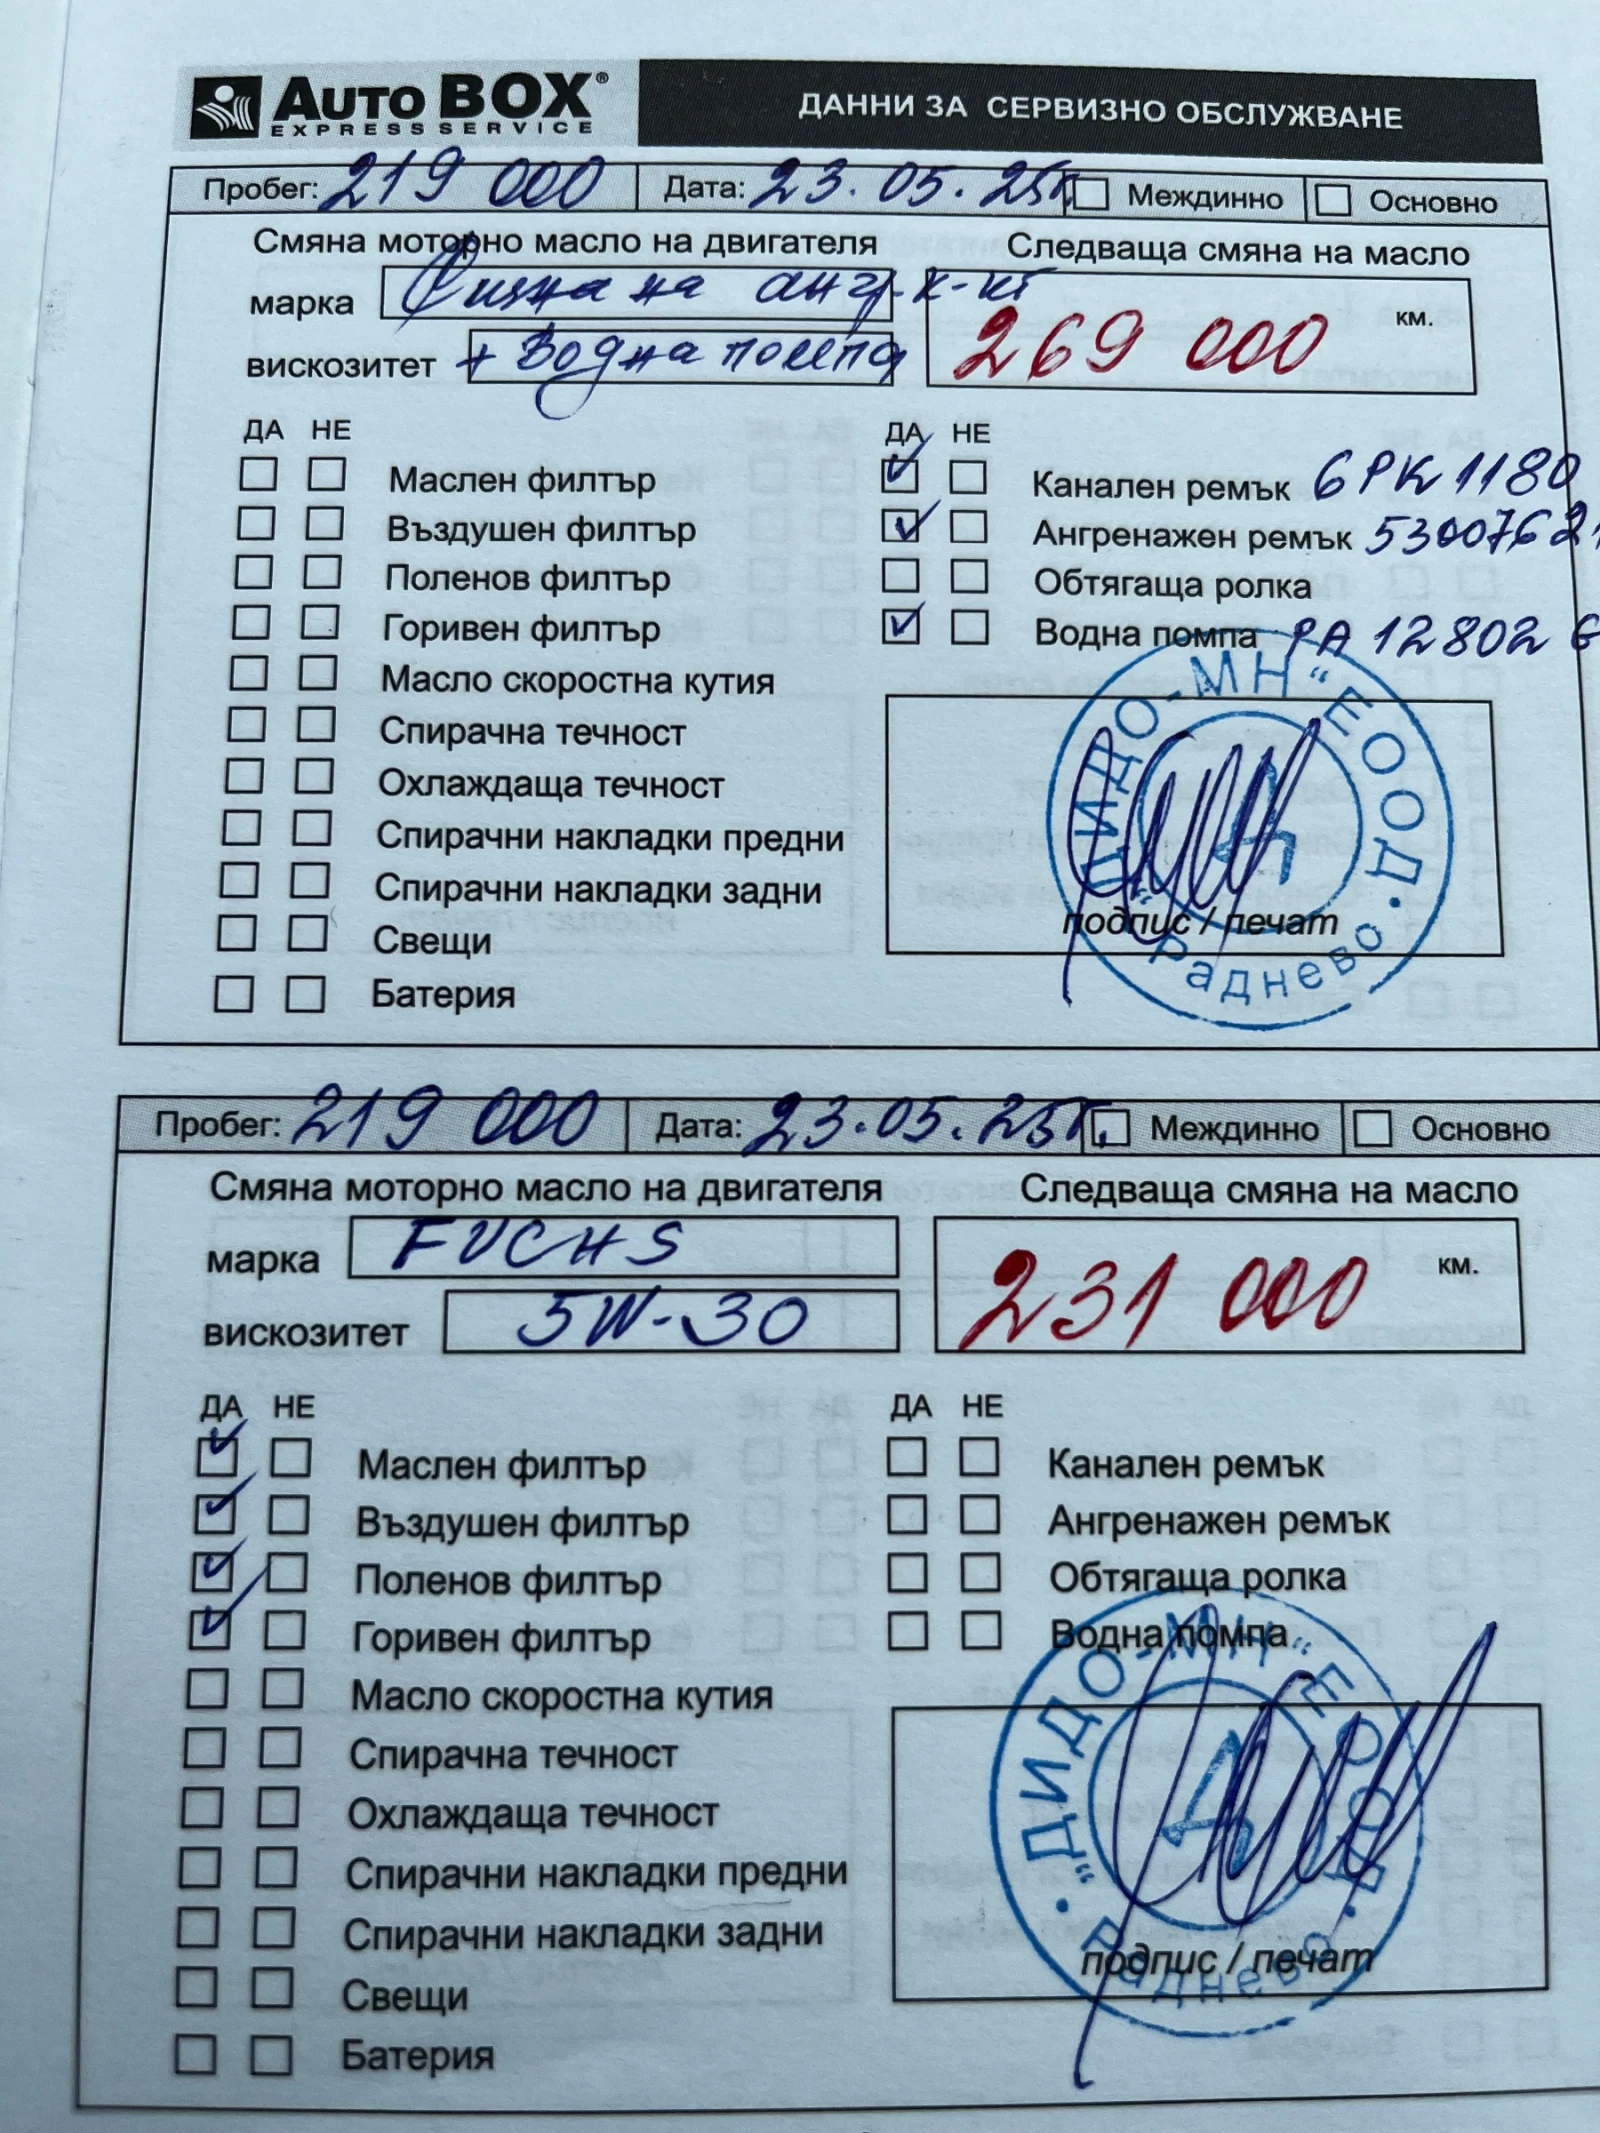 AUTO BOX®
EXPRESS SERVICE
ДАННИ ЗА СЕРВИЗНО ОБСЛУЖВАНЕ
Пробег: 219 000 Дата: 23.05.25г. Междинно Основно
Смяна моторно масло на двигателя Следваща смяна на масло
марка Смяна на анг. к-кт
269 000 км.
вискозитет + Водна помпа
ДА НЕ ДА НЕ
Маслен филтър Канален ремък 6PK1180
Въздушен филтър Ангренажен ремък 53007621
Поленов филтър Обтягаща ролка
Горивен филтър Водна помпа PA 12802
Масло скоростна кутия
Спирачна течност
Охлаждаща течност
Спирачни накладки предни
Спирачни накладки задни
Свещи
Батерия
"ДИДО-МН" ЕООД
Д
подпис / печат
Раднево
Пробег: 219 000 Дата: 23.05.25г. Междинно Основно
Смяна моторно масло на двигателя Следваща смяна на масло
марка FUCHS
231 000 км.
вискозитет 5W-30
ДА НЕ ДА НЕ
Маслен филтър Канален ремък
Въздушен филтър Ангренажен ремък
Поленов филтър Обтягаща ролка
Горивен филтър Водна помпа
Масло скоростна кутия
Спирачна течност
Охлаждаща течност
Спирачни накладки предни
Спирачни накладки задни
Свещи
Батерия
"ДИДО-МН" ЕООД
Д
подпис / печат
Раднево